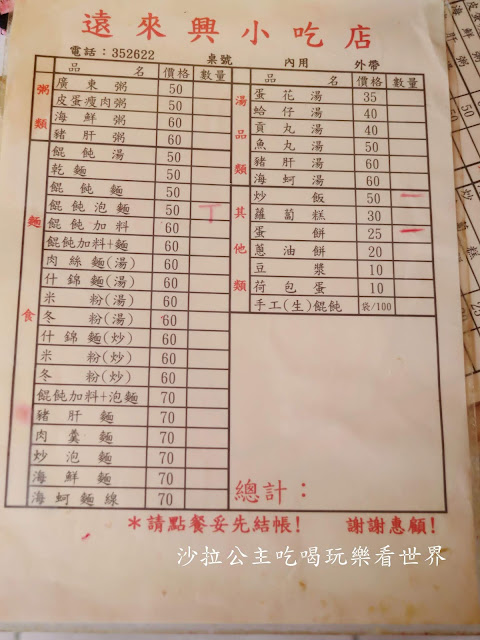 遠來興小吃店
電話：352622 桌號 內用 外帶
品名 價格 數量
粥類
廣東粥 50
皮蛋瘦肉粥 50
海鮮粥 60
豬肝粥 60
麵食
餛飩湯 50
乾麵 50
餛飩麵 50
餛飩泡麵 50
餛飩加料 60
餛飩加料+麵 60
肉絲麵(湯) 60
什錦麵(湯) 60
米粉(湯) 60
冬粉(湯) 60
什錦麵(炒) 60
米粉(炒) 60
冬粉(炒) 60
餛飩加料+泡麵 70
豬肝麵 70
肉羹麵 70
炒泡麵 70
海鮮麵 70
海蚵麵線 70
品名 價格 數量
湯品類
蛋花湯 35
蛤仔湯 40
貢丸湯 40
魚丸湯 50
豬肝湯 60
海蚵湯 60
其他類
炒飯 50 一
蘿蔔糕 30
蛋餅 25 一
蔥油餅 20
豆漿 10
荷包蛋 10
手工(生)餛飩 袋/100
總計：
*請點餐妥先結帳! 謝謝惠顧!
沙拉公主吃喝玩樂看世界